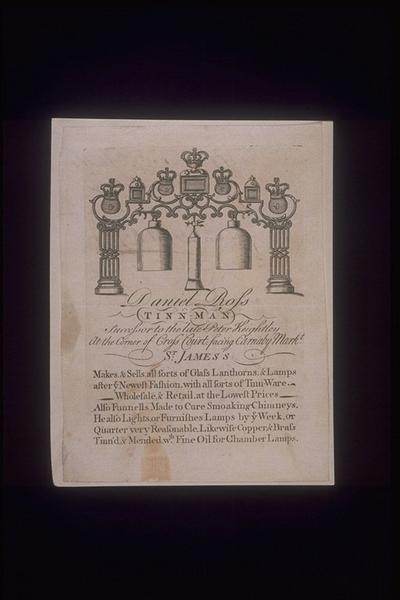 Daniel Roſs
TINN-MAN
Succeſsor to the late Peter Keightley
At the Corner of Croſs Court, facing Carnaby Mark.t
S.T JAMES'S
Makes, & Sells, all ſorts of Glaſs Lanthorns, & Lamps
after y.e Neweſt Faſhion, with all ſorts of Tinn-Ware
Wholeſale, & Retail, at the Loweſt Prices
Alſo Funnells Made to Cure Smoaking Chimneys,
He alſo Lights, or Furniſhes Lamps by y.e Week, or
Quarter very Reaſonable, Likewiſe Copper, & Braſs
Tinn'd, & Mended, w.th Fine Oil for Chamber Lamps.